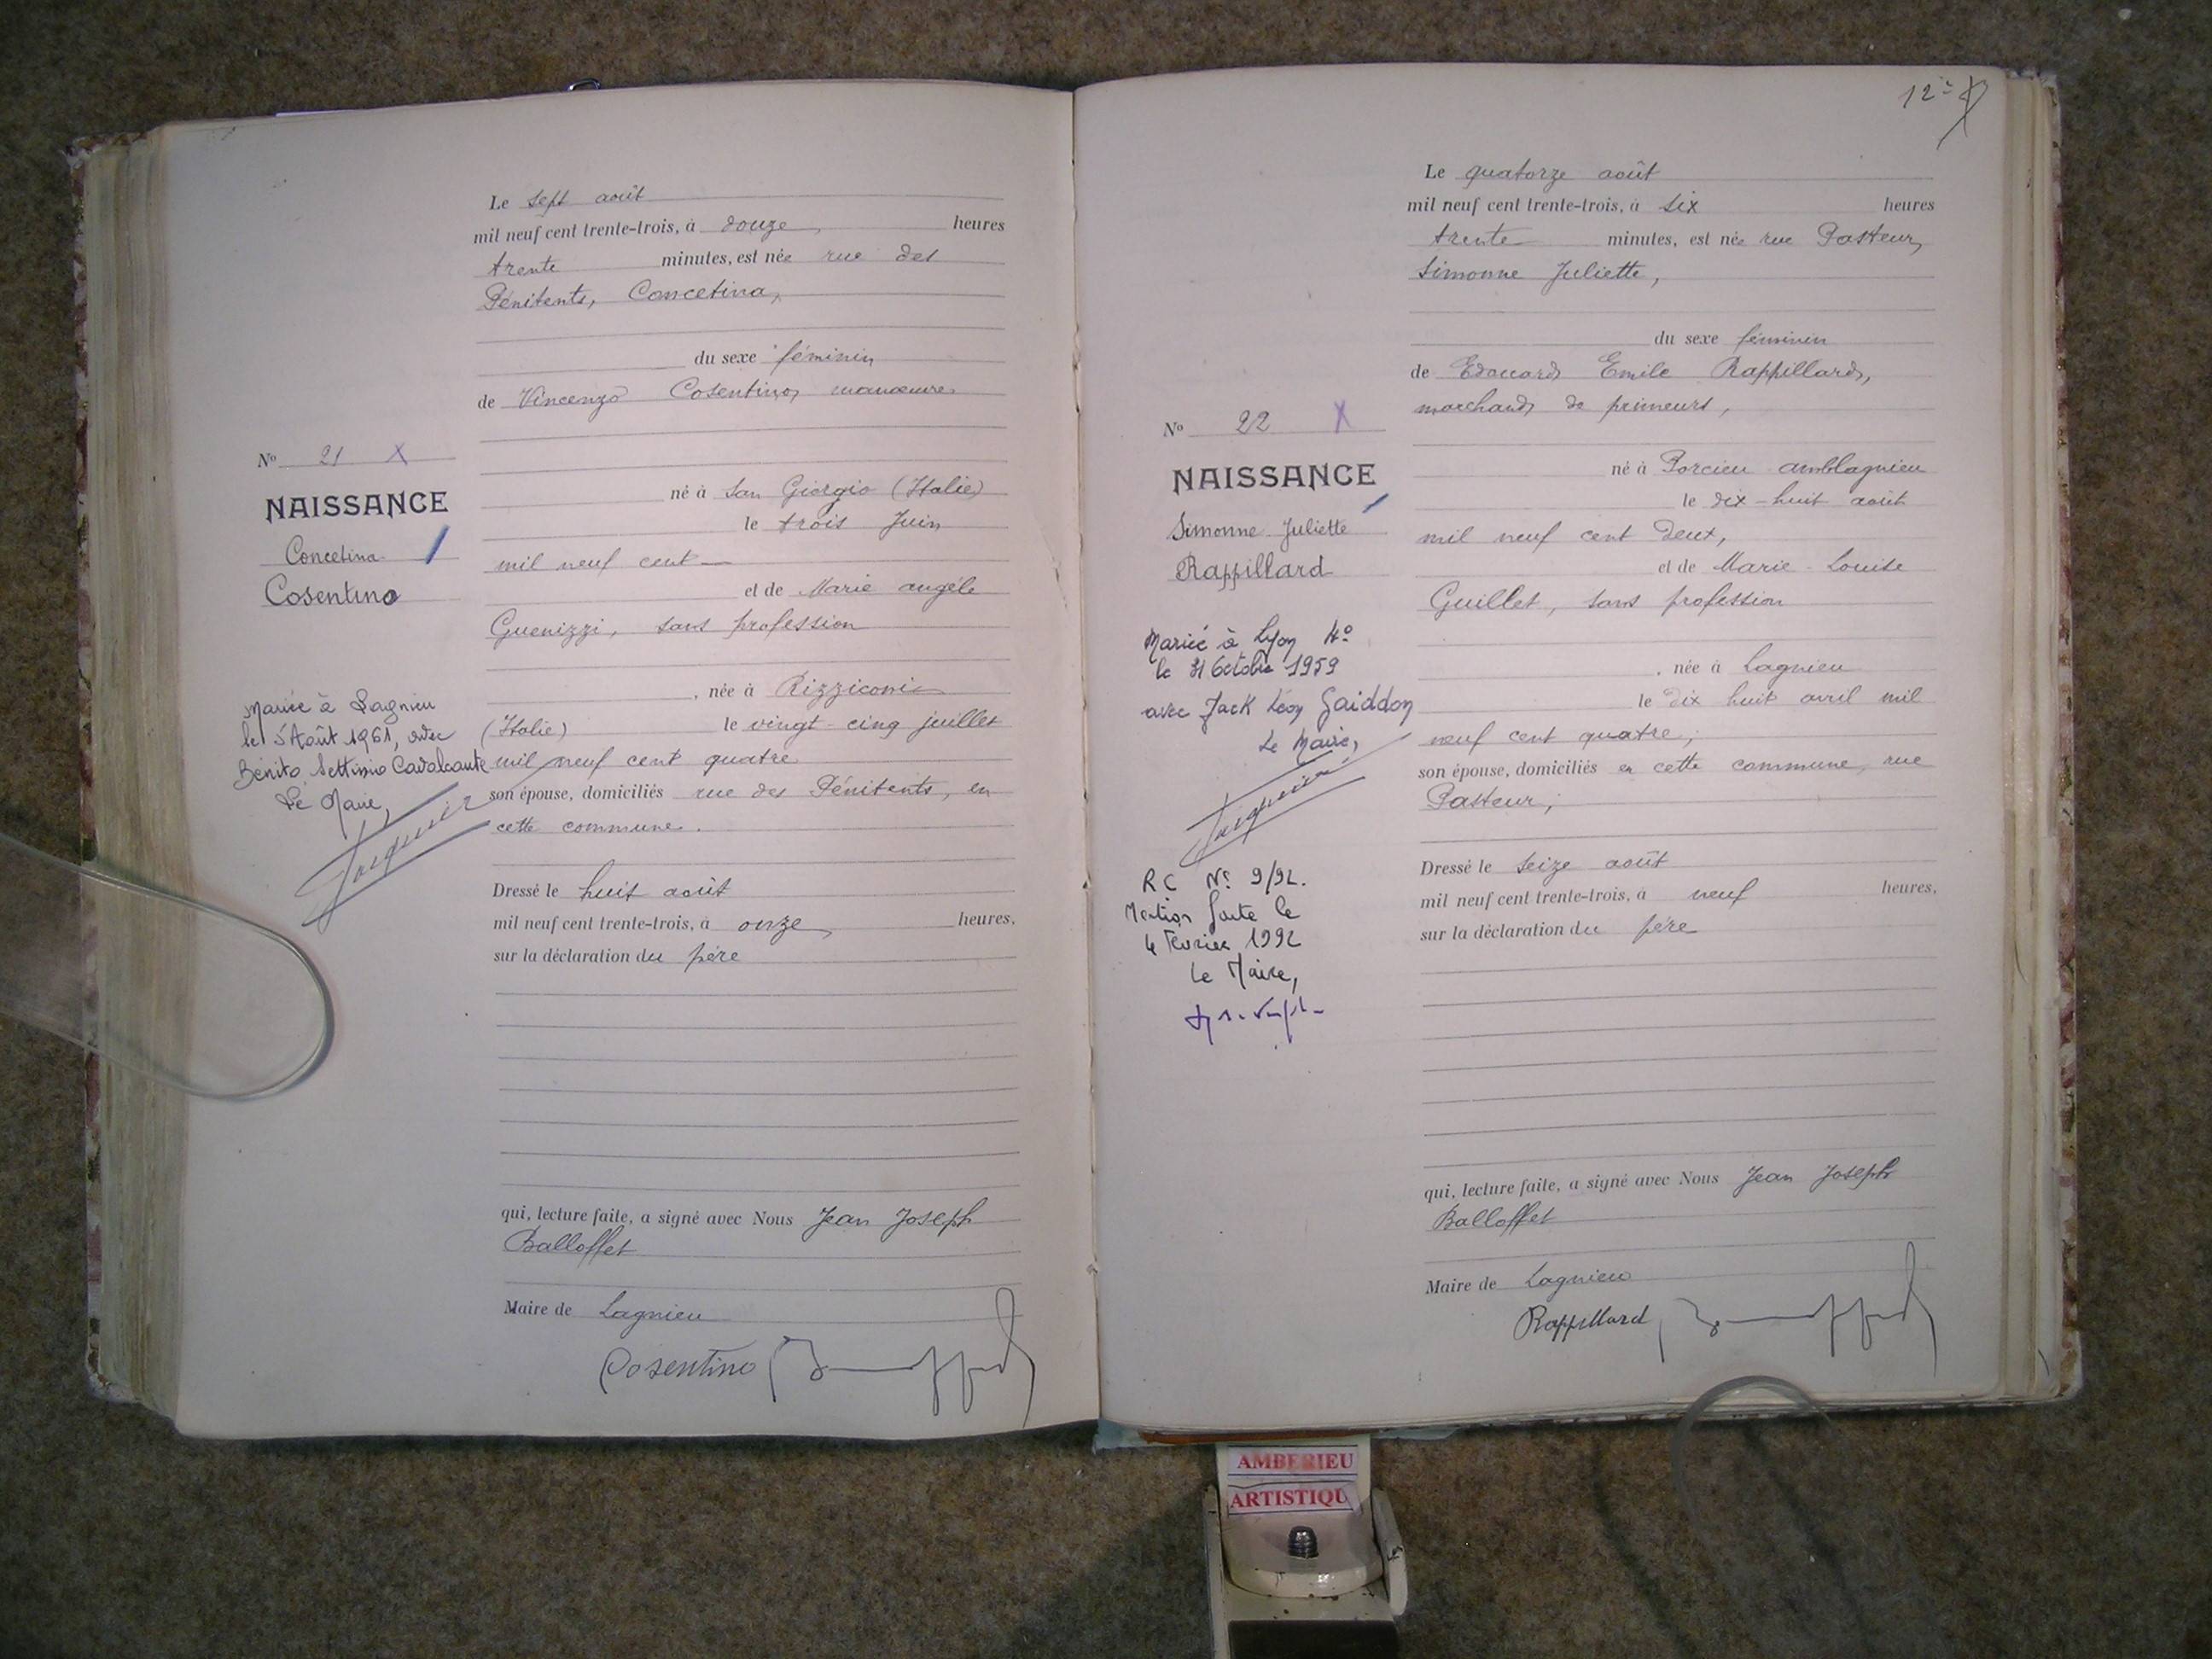 Le sept août
mil neuf cent trente-trois, à douze heures
trente minutes, est née rue des
Pénitents, Concetina,
du sexe féminin
de Vincenzo Cosentino, manœuvre
né à San Giorgio (Italie)
le trois Juin
mil neuf cent
et de Marie angèle
Guenizzi, sans profession
, née à Rizziconi
(Italie) le vingt-cinq juillet
mil neuf cent quatre
son épouse, domiciliés rue des Pénitents, en
cette commune.
Dressé le huit août
mil neuf cent trente-trois, à onze heures,
sur la déclaration du père
qui, lecture faite, a signé avec Nous Jean Joseph
Balloffet
Maire de Lagnieu
Cosentino
No 21 X
NAISSANCE
Concetina
Cosentino
Mariée à Lagnieu
le 5 Août 1961, avec
Bénito Settimio Cavalcante
Le Maire,
12è
Le quatorze août
mil neuf cent trente-trois, à six heures
trente minutes, est née rue Pasteur,
Simonne Juliette,
du sexe féminin
de Edouard Emile Rappillard,
marchand de primeurs,
né à Porcieu amblagnieu
le dix-huit août
mil neuf cent deux,
et de Marie-Louise
Guillet, sans profession
, née à Lagnieu
le dix huit avril mil
neuf cent quatre;
son épouse, domiciliés en cette commune, rue
Pasteur;
Dressé le seize août
mil neuf cent trente-trois, à neuf heures,
sur la déclaration du père
qui, lecture faite, a signé avec Nous Jean Joseph
Balloffet
Maire de Lagnieu
Rappillard
No 22 X
NAISSANCE
Simonne Juliette
Rappillard
Mariée à Lyon 4º
le 31 Octobre 1959
avec Jack Léon Gaiddon
Le Maire,
RC Nº 9/92.
Mention faite le
4 Février 1992
Le Maire,
AMBERIEU
ARTISTIQU